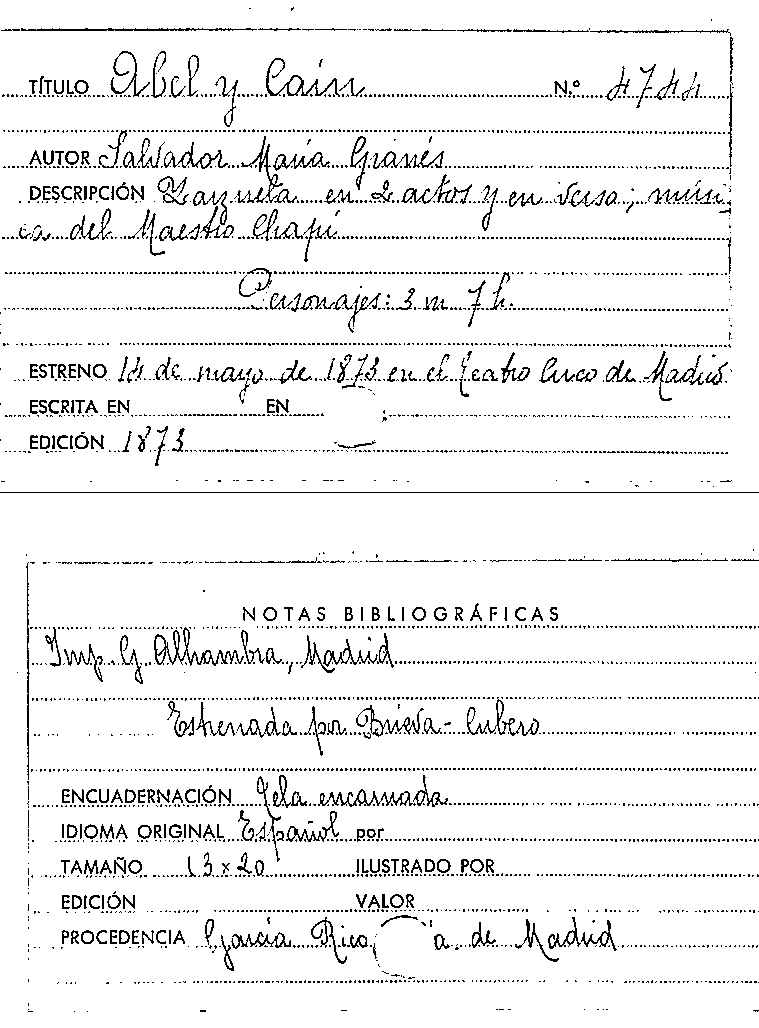 TÍTULO Abel y Caín N.º 4744
AUTOR Salvador María Granés
DESCRIPCIÓN Zarzuela en 2 actos y en verso; músi-
ca del Maestro Chapí
Personajes: 3 m 7 h.
ESTRENO 14 de mayo de 1873 en el teatro Circo de Madrid
ESCRITA EN EN
EDICIÓN 1873
NOTAS BIBLIOGRÁFICAS
Imp. G. Alhambra, Madrid
Estrenada por Brieva - Cubero
ENCUADERNACIÓN Tela encarnada
IDIOMA ORIGINAL Español por
TAMAÑO 13 x 20 ILUSTRADO POR
EDICIÓN VALOR
PROCEDENCIA García Rico, a. de Madrid